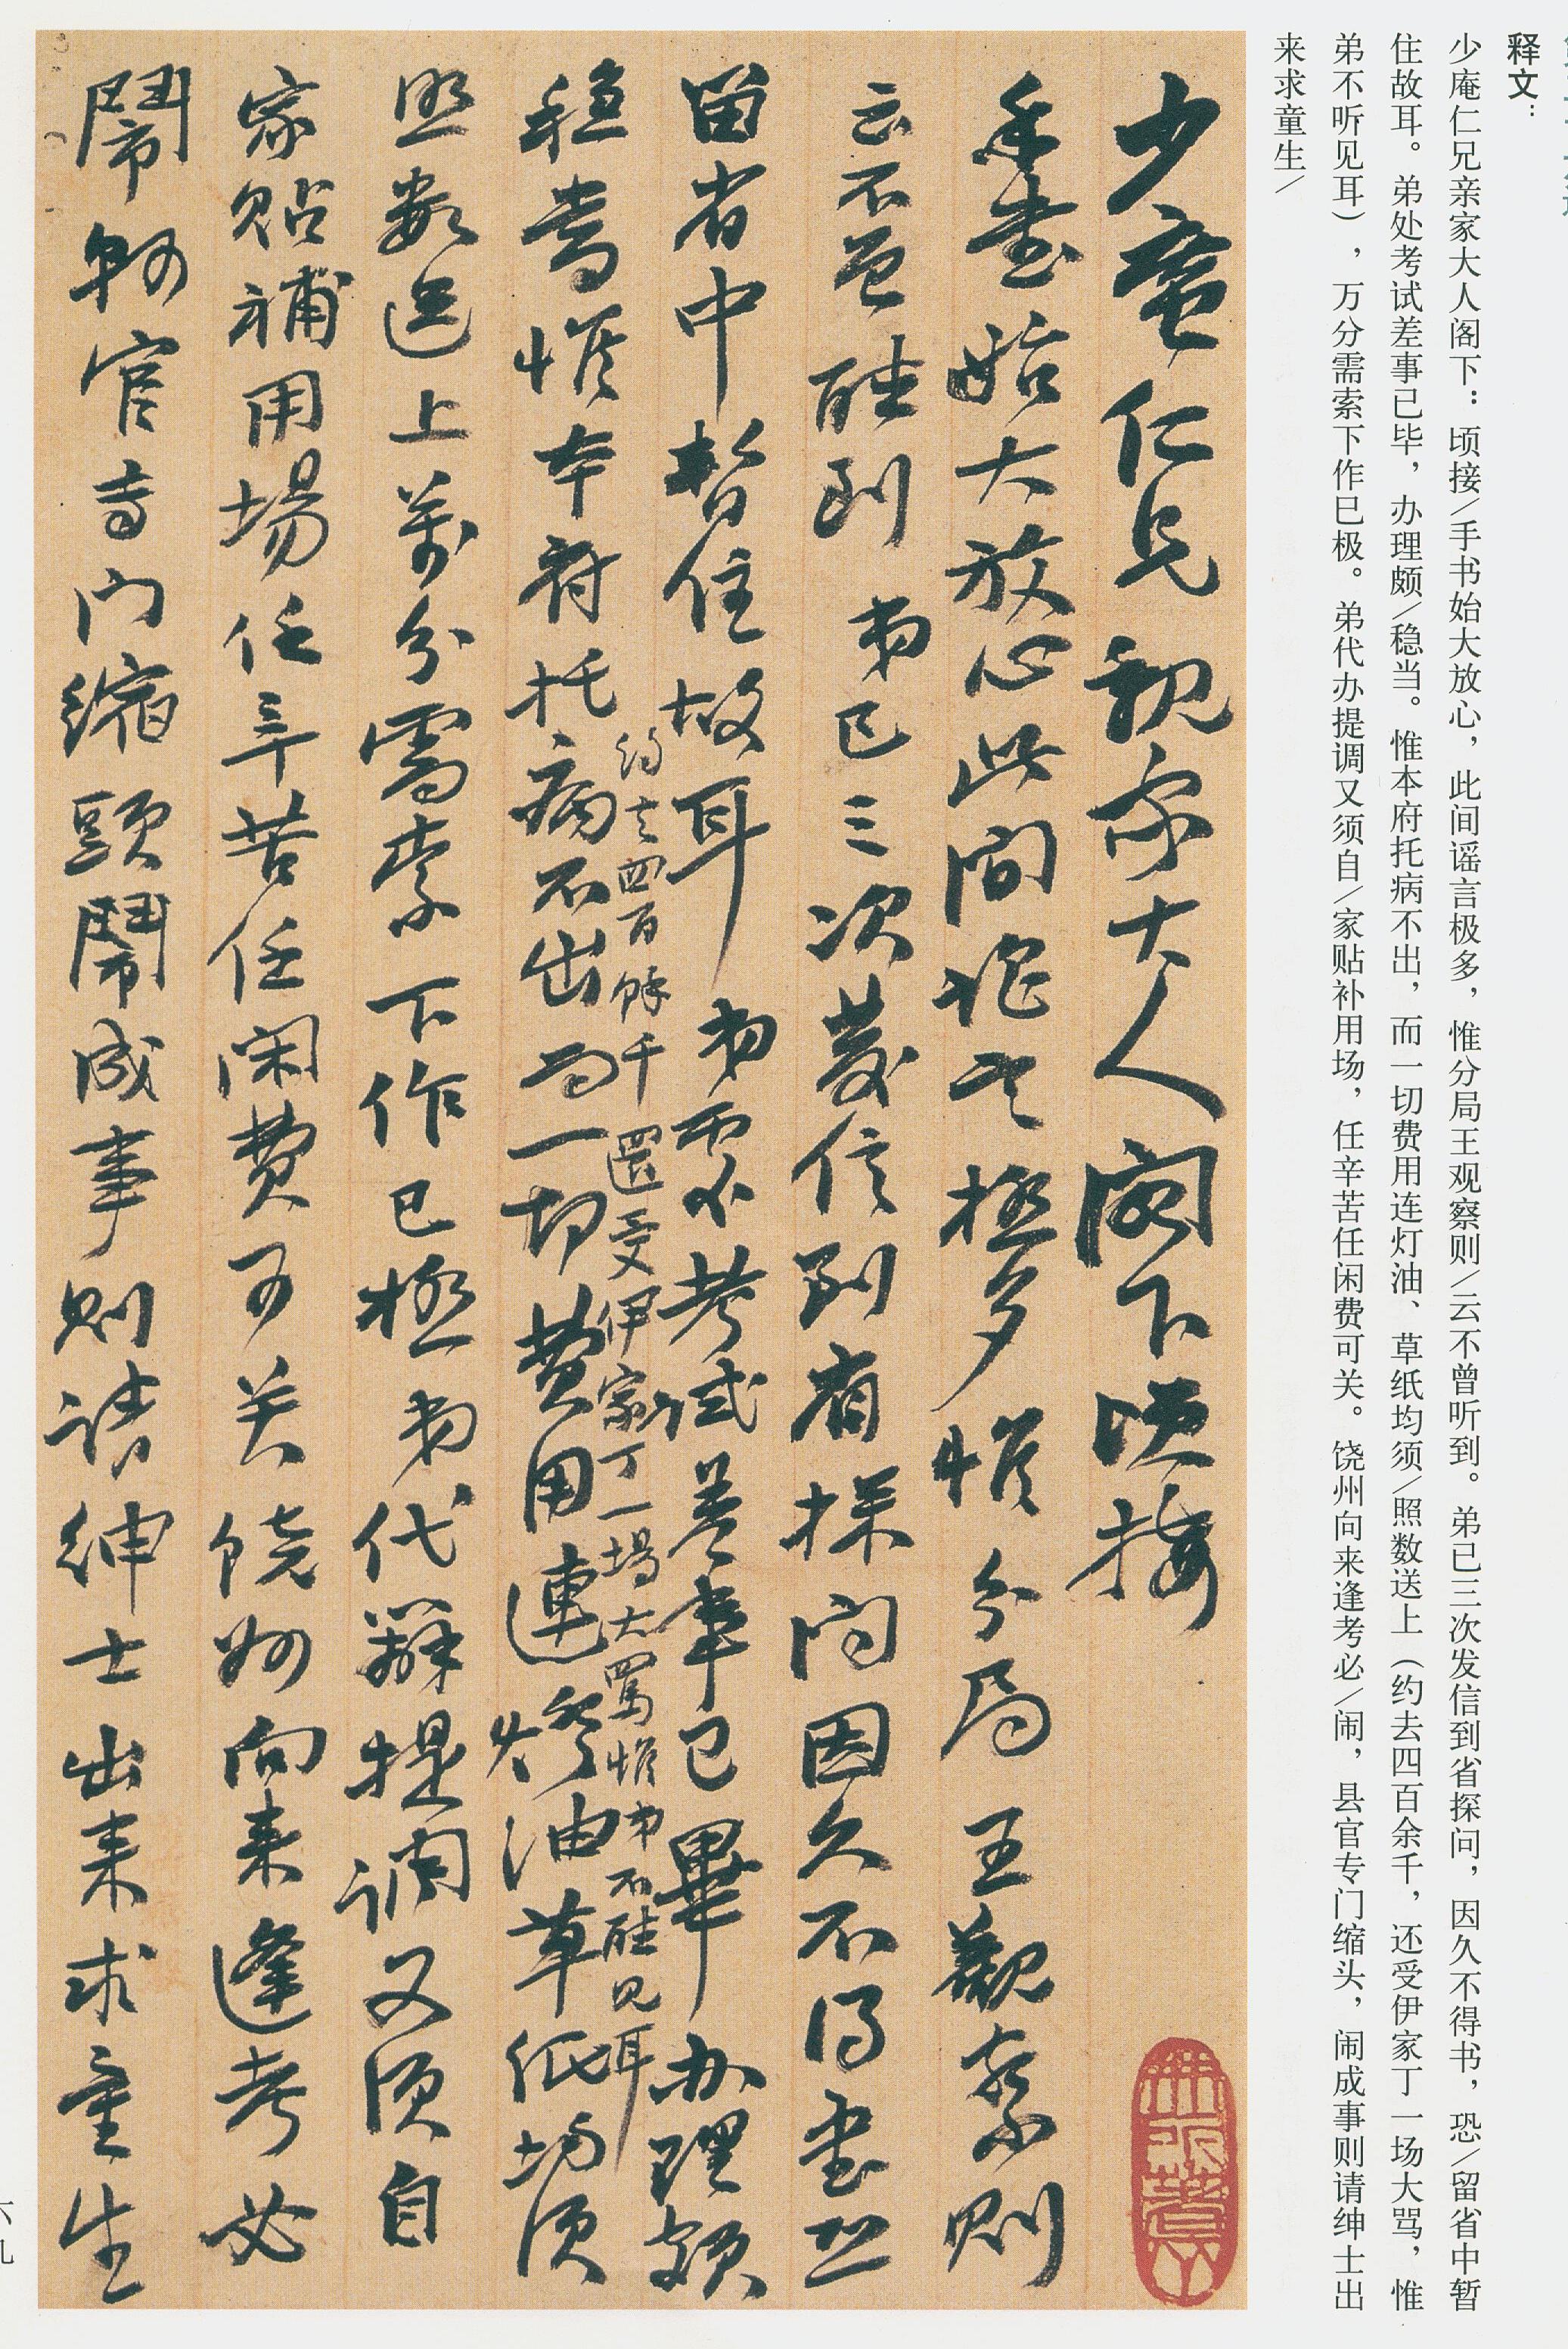 释文：
少庵仁兄亲家大人阁下：顷接／手书始大放心，此间谣言极多，惟分局王观察则／云不曾听到。弟已三次发信到省探问，因久不得书，恐／留省中暂
住故耳。弟处考试差事已毕，办理颇／稳当。惟本府托病不出，而一切费用连灯油、草纸均须／照数送上（约去四百余千，还受伊家丁一场大骂，惟
弟不听见耳），万分需索下作已极。弟代办提调又须自／家贴补用场，任辛苦任闲费可关。饶州向来逢考必／闹，县官专门缩头，闹成事则请绅士出
来求童生／
少庵仁兄親家大人閣下頃接
手書始大放心此间谣言極多惟分局王觀察則
云不曾聽到弟已三次发信到省探问因久不得書恐
留省中暂住故耳弟處考试差事已畢办理颇
稳當惟本府托病不出而一切費用連燈油草纸均须
约去四百餘千還受伊家丁一場大罵惟弟不聽见耳
照数送上萬分需索下作已極弟代辦提调又须自
家贴補用場任辛苦任闲費可关饶州向来逢考必
鬧縣官专门缩頭鬧成事則请紳士出来求童生
六九